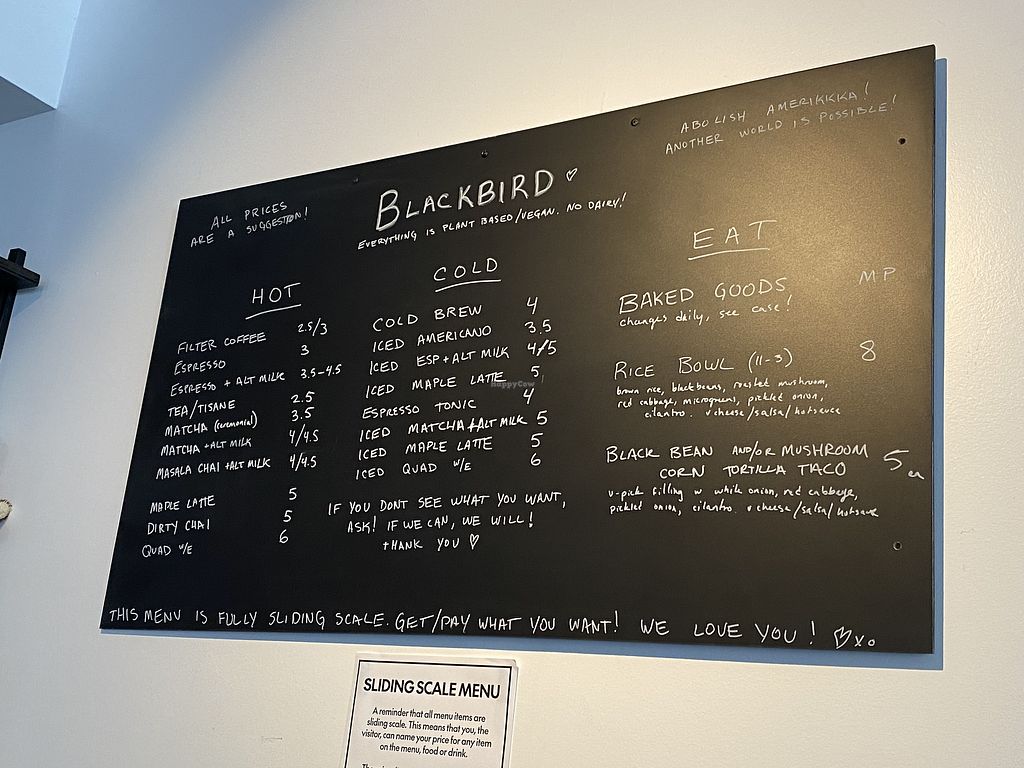 ABOLISH AMERIKKKA!
ANOTHER WORLD IS POSSIBLE!
ALL PRICES
ARE A SUGGESTION!
BLACKBIRD ♡
EVERYTHING IS PLANT BASED/VEGAN. NO DAIRY!
HOT
FILTER COFFEE 2.5/3
ESPRESSO 3
ESPRESSO + ALT MILK 3.5-4.5
TEA/TISANE 2.5
MATCHA (ceremonial) 3.5
MATCHA + ALT MILK 4/4.5
MASALA CHAI + ALT MILK 4/4.5
MAPLE LATTE 5
DIRTY CHAI 5
QUAD W/E 6
COLD
COLD BREW 4
ICED AMERICANO 3.5
ICED ESP + ALT MILK 4/5
ICED MAPLE LATTE 5
ESPRESSO TONIC 4
ICED MATCHA + ALT MILK 5
ICED MAPLE LATTE 5
ICED QUAD W/E 6
IF YOU DONT SEE WHAT YOU WANT,
ASK! IF WE CAN, WE WILL!
THANK YOU ♡
EAT
BAKED GOODS MP
changes daily, see case!
RICE BOWL (11-3) 8
brown rice, black beans, roasted mushroom,
red cabbage, microgreens, pickled onion,
cilantro. v cheese/salsa/hotsauce
BLACK BEAN AND/OR MUSHROOM 5 ea
CORN TORTILLA TACO
u-pick filling w white onion, red cabbage,
pickled onion, cilantro. v cheese/salsa/hotsauce
THIS MENU IS FULLY SLIDING SCALE. GET/PAY WHAT YOU WANT! WE LOVE YOU! ♡xo
HappyCow
SLIDING SCALE MENU
A reminder that all menu items are
sliding scale. This means that you, the
visitor, can name your price for any item
on the menu, food or drink.